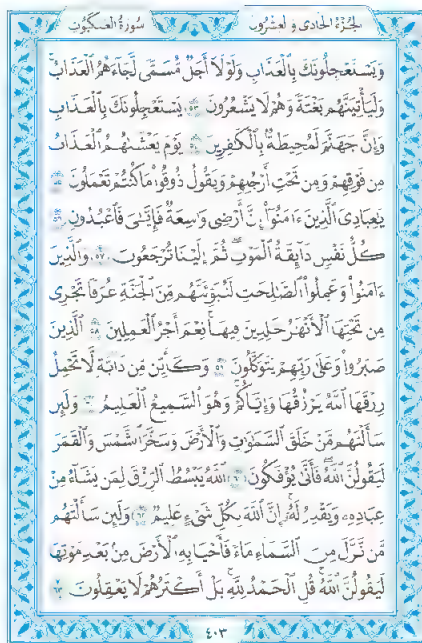 الجزء الحادي والعشرون
سورة العنكبوت
وَيَسْتَعْجِلُونَكَ بِالْعَذَابِ وَلَوْلَا أَجَلٌ مُّسَمًّى لَّجَاءَهُمُ الْعَذَابُ
وَلَيَأْتِيَنَّهُم بَغْتَةً وَهُمْ لَا يَشْعُرُونَ ٥٣ يَسْتَعْجِلُونَكَ بِالْعَذَابِ
وَإِنَّ جَهَنَّمَ لَمُحِيطَةٌ بِالْكَٰفِرِينَ ٥٤ يَوْمَ يَغْشَىٰهُمُ الْعَذَابُ
مِن فَوْقِهِمْ وَمِن تَحْتِ أَرْجُلِهِمْ وَيَقُولُ ذُوقُوا مَا كُنتُمْ تَعْمَلُونَ ٥٥
يَٰعِبَادِيَ الَّذِينَ ءَامَنُوا إِنَّ أَرْضِي وَٰسِعَةٌ فَإِيَّٰيَ فَاعْبُدُونِ ٥٦
كُلُّ نَفْسٍ ذَائِقَةُ الْمَوْتِ ثُمَّ إِلَيْنَا تُرْجَعُونَ ٥٧ وَالَّذِينَ
ءَامَنُوا وَعَمِلُوا الصَّٰلِحَٰتِ لَنُبَوِّئَنَّهُم مِّنَ الْجَنَّةِ غُرَفًا تَجْرِي
مِن تَحْتِهَا الْأَنْهَٰرُ خَٰلِدِينَ فِيهَا نِعْمَ أَجْرُ الْعَٰمِلِينَ ٥٨ الَّذِينَ
صَبَرُوا وَعَلَىٰ رَبِّهِمْ يَتَوَكَّلُونَ ٥٩ وَكَأَيِّن مِّن دَابَّةٍ لَّا تَحْمِلُ
رِزْقَهَا اللَّهُ يَرْزُقُهَا وَإِيَّاكُمْ وَهُوَ السَّمِيعُ الْعَلِيمُ ٦٠ وَلَئِن
سَأَلْتَهُم مَّنْ خَلَقَ السَّمَٰوَٰتِ وَالْأَرْضَ وَسَخَّرَ الشَّمْسَ وَالْقَمَرَ
لَيَقُولُنَّ اللَّهُ فَأَنَّىٰ يُؤْفَكُونَ ٦١ اللَّهُ يَبْسُطُ الرِّزْقَ لِمَن يَشَاءُ مِنْ
عِبَادِهِ وَيَقْدِرُ لَهُ إِنَّ اللَّهَ بِكُلِّ شَيْءٍ عَلِيمٌ ٦٢ وَلَئِن سَأَلْتَهُم
مَّن نَّزَّلَ مِنَ السَّمَاءِ مَاءً فَأَحْيَا بِهِ الْأَرْضَ مِن بَعْدِ مَوْتِهَا
لَيَقُولُنَّ اللَّهُ قُلِ الْحَمْدُ لِلَّهِ بَلْ أَكْثَرُهُمْ لَا يَعْقِلُونَ ٦٣
٤٠٣